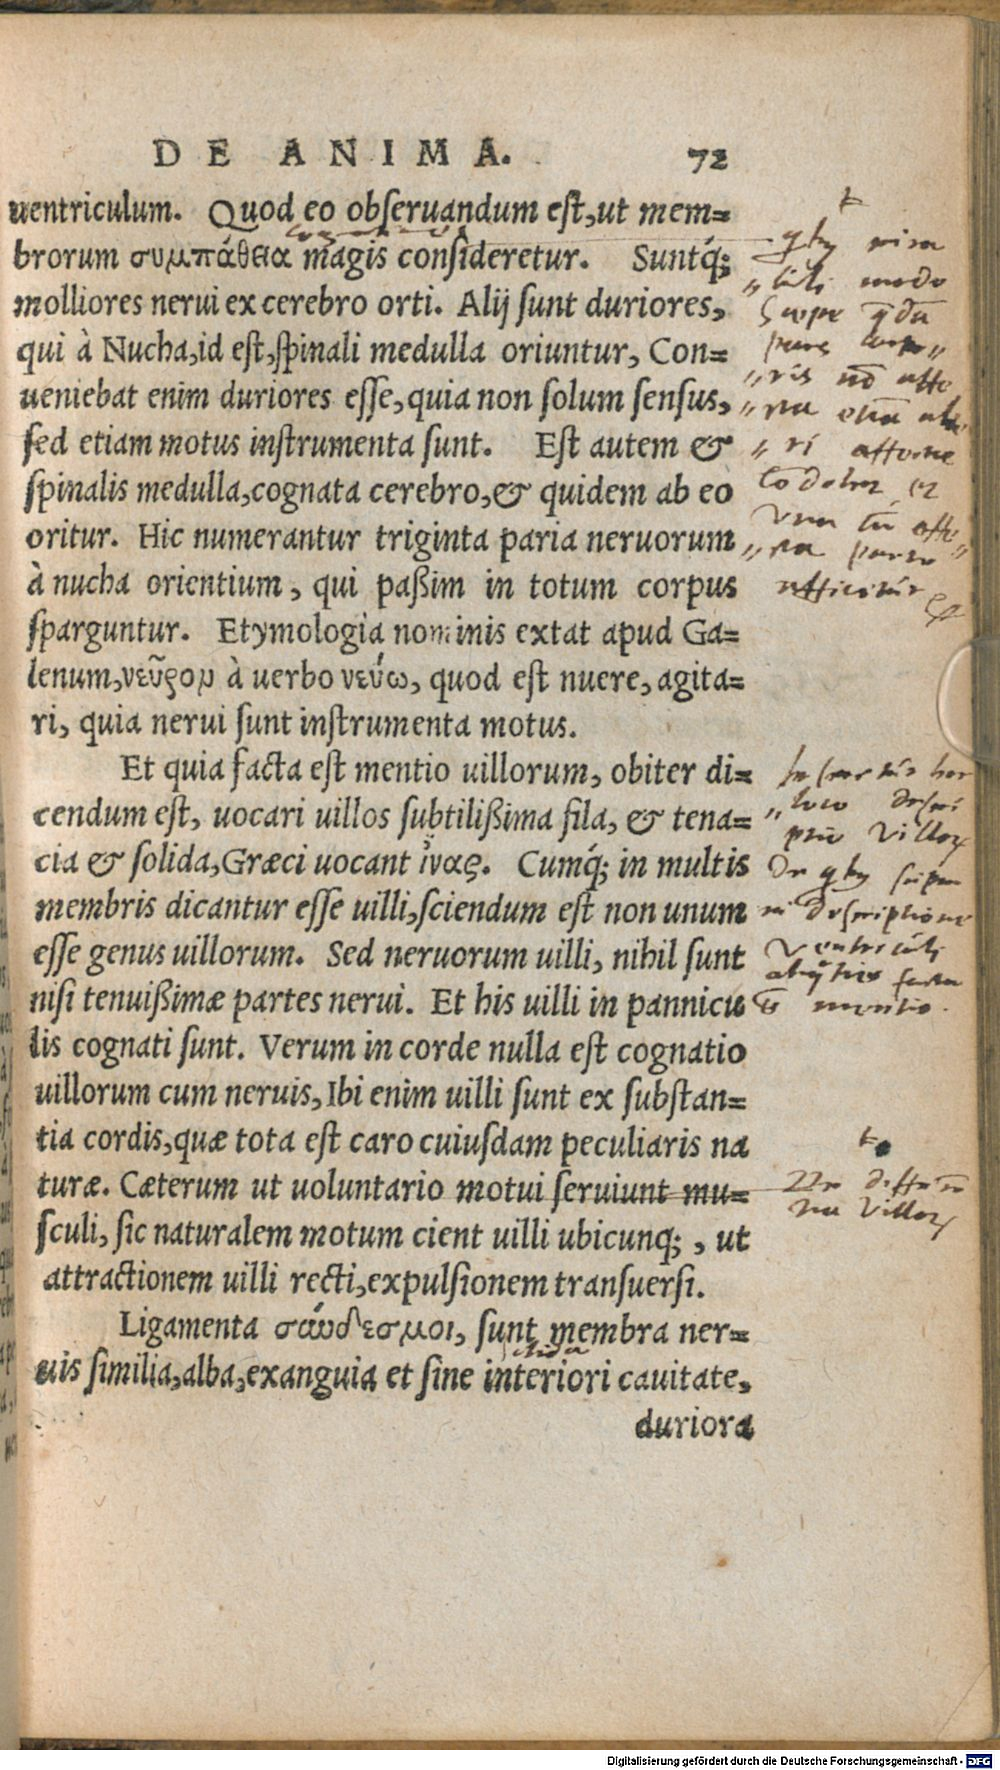 DE ANIMA. 72
uentriculum. Quod eo obſeruandum eſt, ut mem=
brorum συμπάθεια magis conſideretur. Suntq́;
molliores nerui ex cerebro orti. Alij ſunt duriores,
qui à Nucha, id eſt, ſpinali medulla oriuntur, Con=
ueniebat enim duriores eſſe, quia non ſolum ſenſus,
ſed etiam motus inſtrumenta ſunt. Eſt autem &
ſpinalis medulla, cognata cerebro, & quidem ab eo
oritur. Hic numerantur triginta paria neruorum
à nucha orientium, qui paßim in totum corpus
ſparguntur. Etymologia nominis extat apud Ga=
lenum, νεῦρον à uerbo νεύω, quod eſt nuere, agita=
ri, quia nerui ſunt inſtrumenta motus.
Et quia facta eſt mentio uillorum, obiter di=
cendum eſt, uocari uillos ſubtilißima fila, & tena=
cia & ſolida, Græci uocant ἶνας. Cumq́; in multis
membris dicantur eſſe uilli, ſciendum eſt non unum
eſſe genus uillorum. Sed neruorum uilli, nihil ſunt
niſi tenuißimæ partes nerui. Et his uilli in pannicu
lis cognati ſunt. Verum in corde nulla eſt cognatio
uillorum cum neruis, Ibi enim uilli ſunt ex ſubſtan=
tia cordis, quæ tota eſt caro cuiuſdam peculiaris na
turæ. Cæterum ut uoluntario motui ſeruiunt mu=
ſculi, ſic naturalem motum cient uilli ubicunq; , ut
attractionem uilli recti, expulſionem tranſuerſi.
Ligamenta σύνδεσμοι, ſunt membra ner=
uis ſimilia, alba, exanguia et ſine interiori cauitate,
duriora
loco
Villorum
descriptione
Ventriculi
mentio.
Villorum
Digitalisierung gefördert durch die Deutsche Forschungsgemeinschaft - DFG